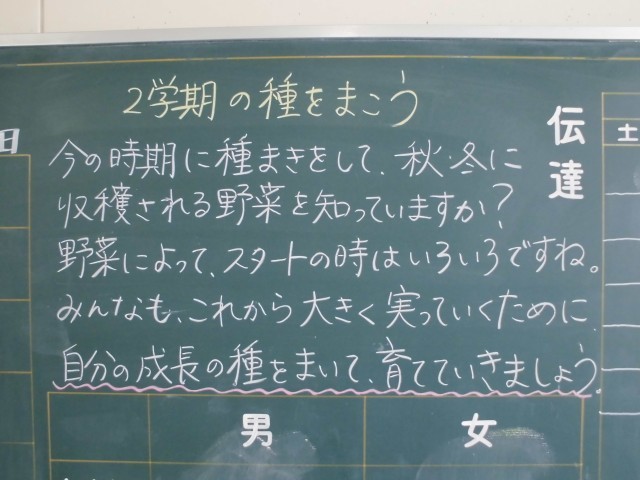 2学期の種をまこう
伝達
今の時期に種まきをして、秋・冬に
収穫される野菜を知っていますか?
野菜によって、スタートの時はいろいろですね。
みんなも、これから大きく実っていくために
自分の成長の種をまいて、育てていきましょう
男
女
土